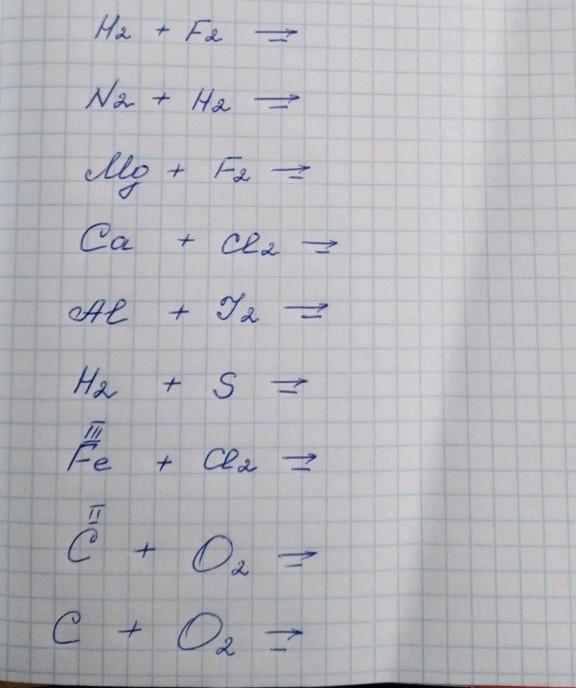 H₂ + F₂ →
N₂ + H₂ →
Mg + F₂ →
Ca + Cl₂ →
Al + J₂ →
H₂ + S →
III
Fe + Cl₂ →
II
C + O₂ →
C + O₂ →